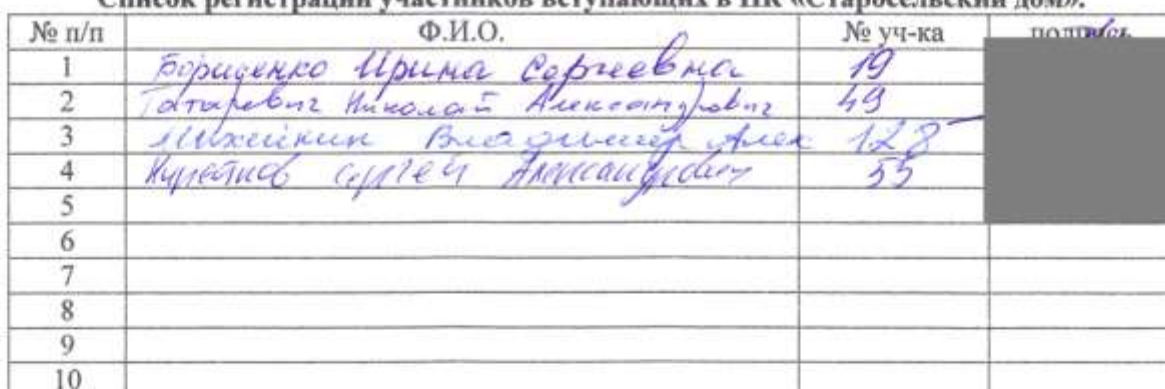 Список регистрации участников вступающих в ПК «Старосельский дом».
№ п/п Ф.И.О. № уч-ка подпись
1 Борисенко Ирина Сергеевна 19
2 Татаревич Николай Александрович 49
3 Михейкин Владимир Алек 128
4 Сергей Александрович 55
5
6
7
8
9
10